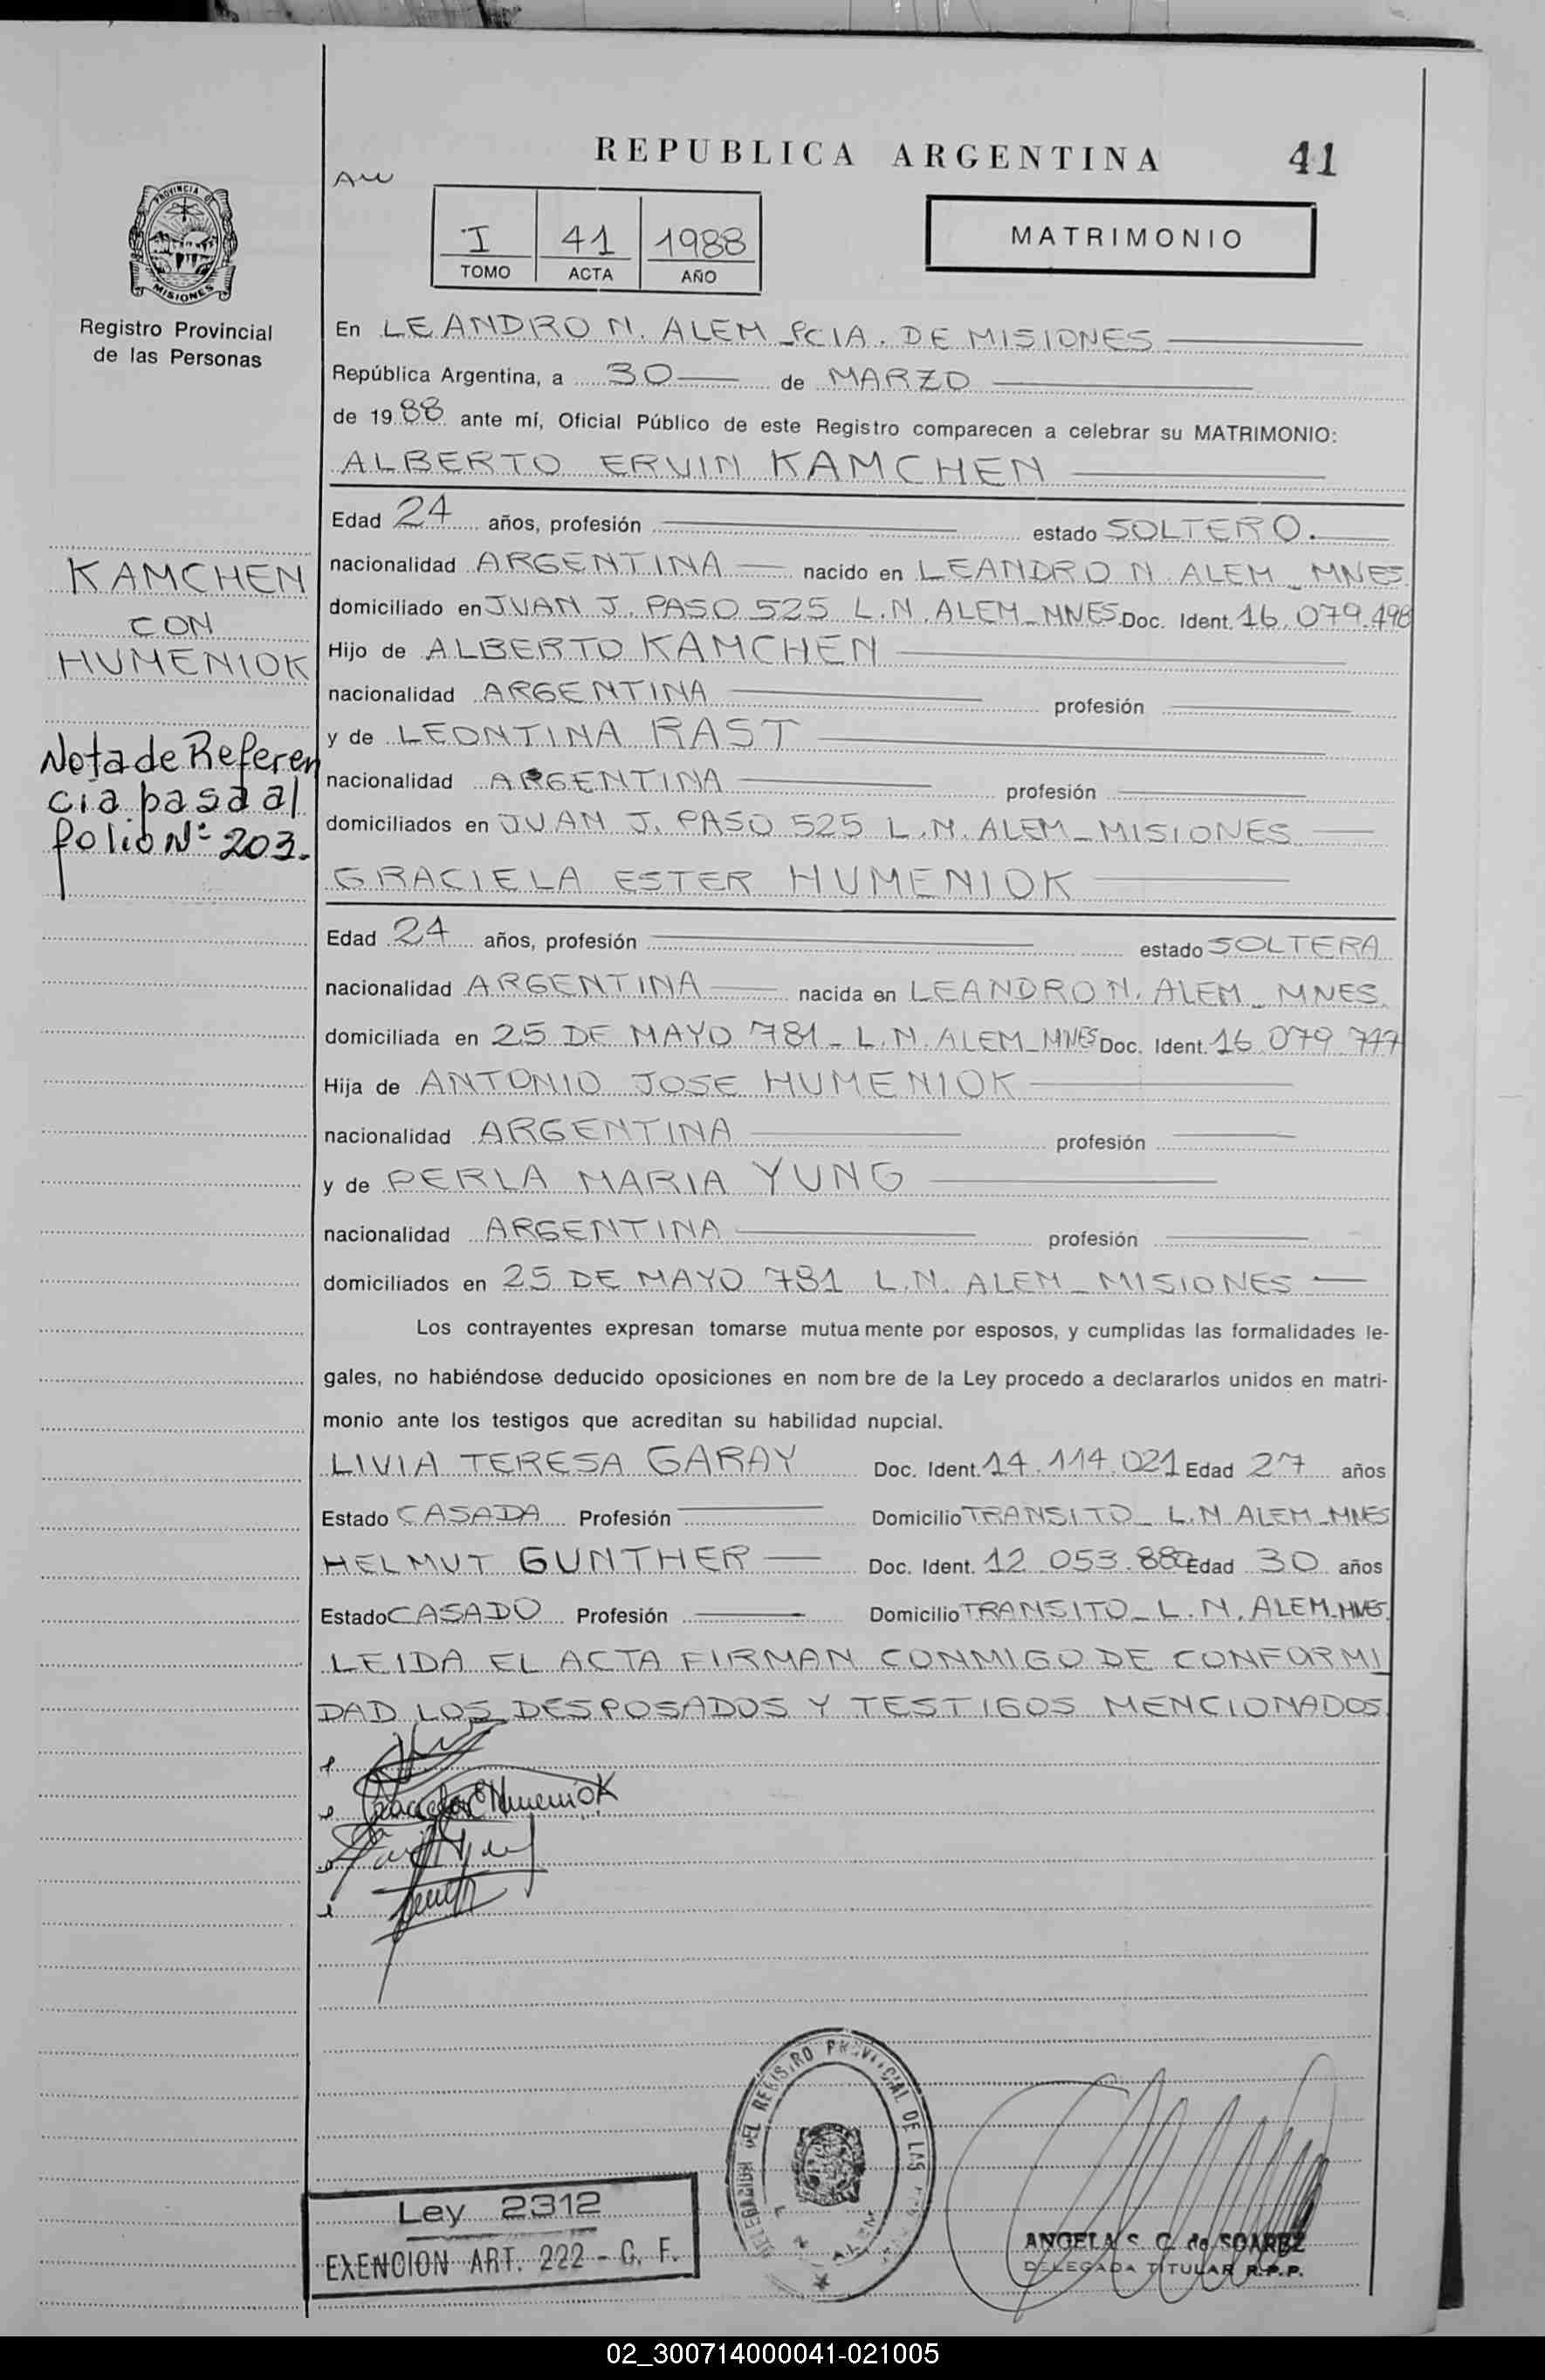 REPUBLICA ARGENTINA 41
PROVINCIA DE
MISIONES
Registro Provincial
de las Personas
I 41 1988
TOMO ACTA AÑO
MATRIMONIO
En LEANDRO N. ALEM PCIA. DE MISIONES
República Argentina, a 30 de MARZO
de 1988 ante mí, Oficial Público de este Registro comparecen a celebrar su MATRIMONIO:
ALBERTO ERVIN KAMCHEN
Edad 24 años, profesión estado SOLTERO.
nacionalidad ARGENTINA nacido en LEANDRO N. ALEM - MNES
domiciliado en JUAN J. PASO 525 L.N. ALEM - MNES Doc. Ident. 16.079.498
Hijo de ALBERTO KAMCHEN
nacionalidad ARGENTINA profesión
y de LEONTINA RAST
nacionalidad ARGENTINA profesión
domiciliados en JUAN J. PASO 525 L.N. ALEM - MISIONES
KAMCHEN
CON
HUMENIOK
Nota de Referen
cia pasa al
folio Nº 203.-
GRACIELA ESTER HUMENIOK
Edad 24 años, profesión estado SOLTERA
nacionalidad ARGENTINA nacida en LEANDRO N. ALEM - MNES.
domiciliada en 25 DE MAYO 781 - L.N. ALEM - MNES Doc. Ident. 16.079.747
Hija de ANTONIO JOSE HUMENIOK
nacionalidad ARGENTINA profesión
y de PERLA MARIA YUNG
nacionalidad ARGENTINA profesión
domiciliados en 25 DE MAYO 781 L.N. ALEM - MISIONES
Los contrayentes expresan tomarse mutuamente por esposos, y cumplidas las formalidades le-
gales, no habiéndose deducido oposiciones en nombre de la Ley procedo a declararlos unidos en matri-
monio ante los testigos que acreditan su habilidad nupcial.
LIVIA TERESA GARAY Doc. Ident. 14.114.021 Edad 27 años
Estado CASADA Profesión Domicilio TRANSITO - L.N ALEM - MNES
HELMUT GUNTHER Doc. Ident. 12.053.880 Edad 30 años
Estado CASADO Profesión Domicilio TRANSITO - L.N. ALEM - MNES.
LEIDA EL ACTA FIRMAN CONMIGO DE CONFORMI
DAD LOS DESPOSADOS Y TESTIGOS MENCIONADOS
Graciela E Humeniok
DELEGACION DEL REGISTRO PROVINCIAL DE LAS
Ley 2312
EXENCION ART. 222 - C. F.
ANGELA S. C. de SOAREZ
DELEGADA TITULAR R.P.P.
02_300714000041-021005